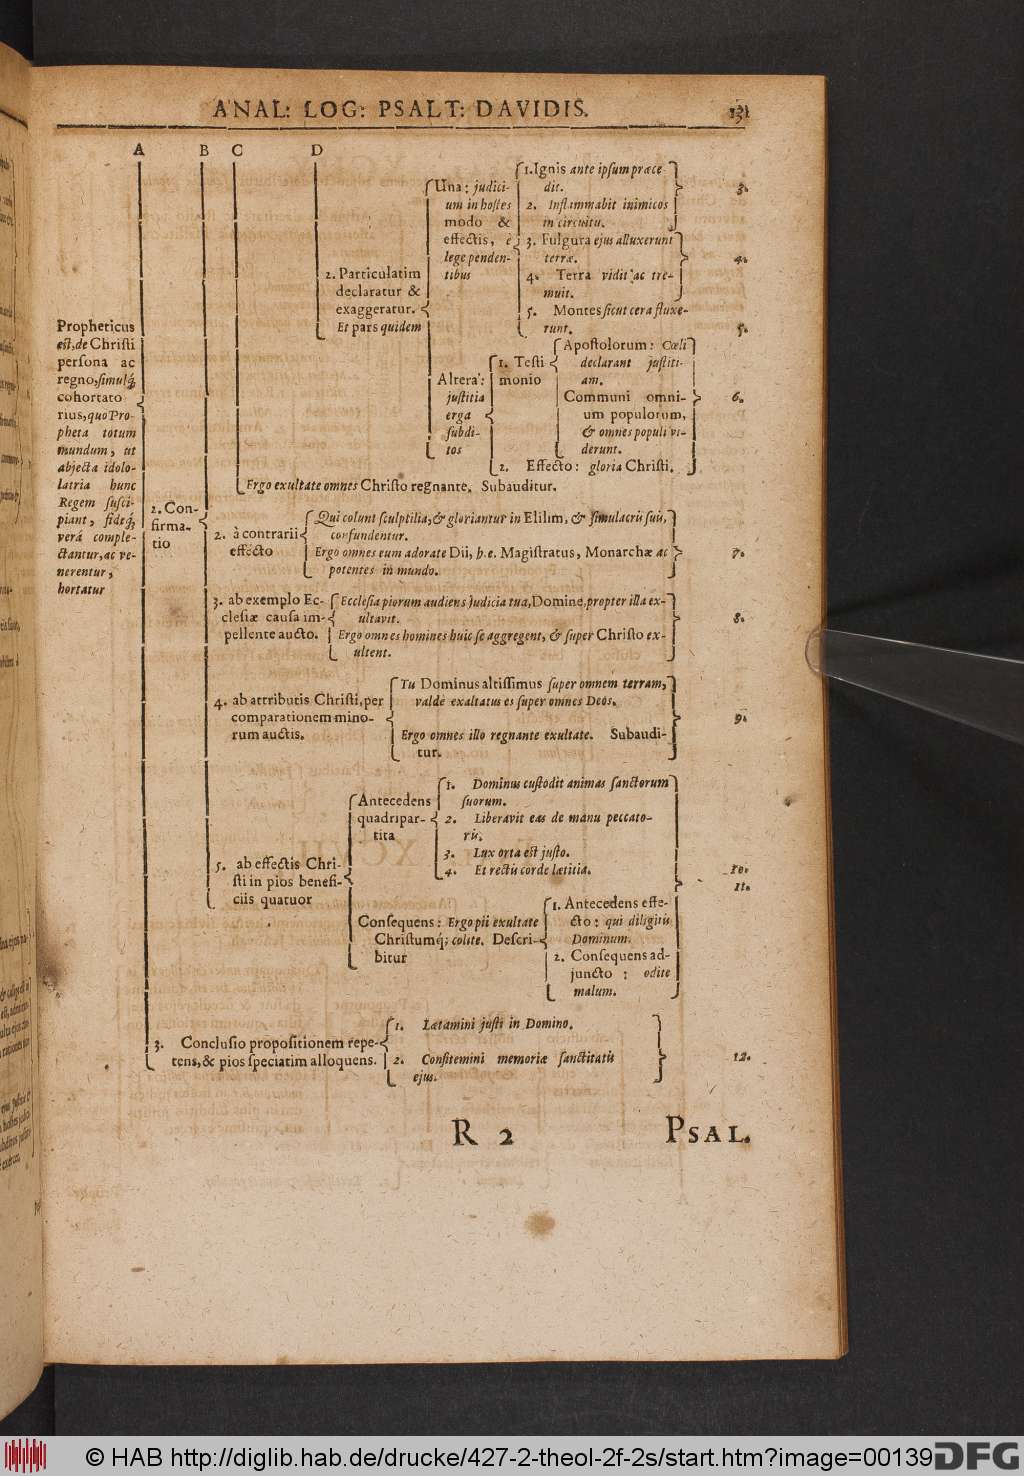 ANAL: LOG: PSALT: DAVIDIS.
131
A B C D
Propheticus
est, de Christi
persona ac
regno, simulq́;
cohortato
rius, quo Pro-
pheta totum
mundum, ut
abjecta idolo-
latria hunc
Regem susci-
piant, fideq́;
verâ comple-
ctantur, ac ve-
nerentur,
hortatur
2. Con-
firma-
tio
2. Particulatim
declaratur &
exaggeratur.
Et pars quidem
Una: judici-
um in hostes
modo &
effectis, è
lege penden-
tibus
1. Ignis ante ipsum præce
dit.
3.
2. Inflammabit inimicos
in circuitu.
3. Fulgura ejus alluxerunt
terræ.
4.
4. Terra vidit ac tre-
muit.
5. Montes sicut cera fluxe-
runt.
5.
Altera:
justitia
erga
subdi-
tos
1. Testi
monio
Apostolorum: Cœli
declarant justiti-
am.
Communi omni-
um populorum,
& omnes populi vi-
derunt.
6.
2. Effecto: gloria Christi.
Ergo exultate omnes Christo regnante. Subauditur.
2. à contrarii
effecto
Qui colunt sculptilia, & gloriantur in Elilim, & simulacris suis,
confundentur.
Ergo omnes eum adorate Dii, h.e. Magistratus, Monarchæ ac
potentes in mundo.
7.
3. ab exemplo Ec-
clesiæ causa im-
pellente aucto.
Ecclesia piorum audiens judicia tua, Domine, propter illa ex-
ultavit.
Ergo omnes homines huic se aggregent, & super Christo ex-
ultent.
8.
4. ab attributis Christi, per
comparationem mino-
rum auctis.
Tu Dominus altissimus super omnem terram,
valdè exaltatus es super omnes Deos.
Ergo omnes illo regnante exultate. Subaudi-
tur.
9.
5. ab effectis Chri-
sti in pios benefi-
ciis quatuor
Antecedens
quadripar-
tita
1. Dominus custodit animas sanctorum
suorum.
2. Liberavit eas de manu peccato-
ris.
3. Lux orta est justo.
4. Et rectis corde lætitia.
10.
11.
Consequens: Ergo pii exultate
Christumq́; colite. Descri-
bitur
1. Antecedens effe-
cto: qui diligitis
Dominum.
2. Consequens ad-
juncto: odite
malum.
3. Conclusio propositionem repe-
tens, & pios speciatim alloquens.
1. Lætamini justi in Domino.
2. Confitemini memoriæ sanctitatis
ejus.
12.
R 2
PSAL.
© HAB http://diglib.hab.de/drucke/427-2-theol-2f-2s/start.htm?image=00139
DFG